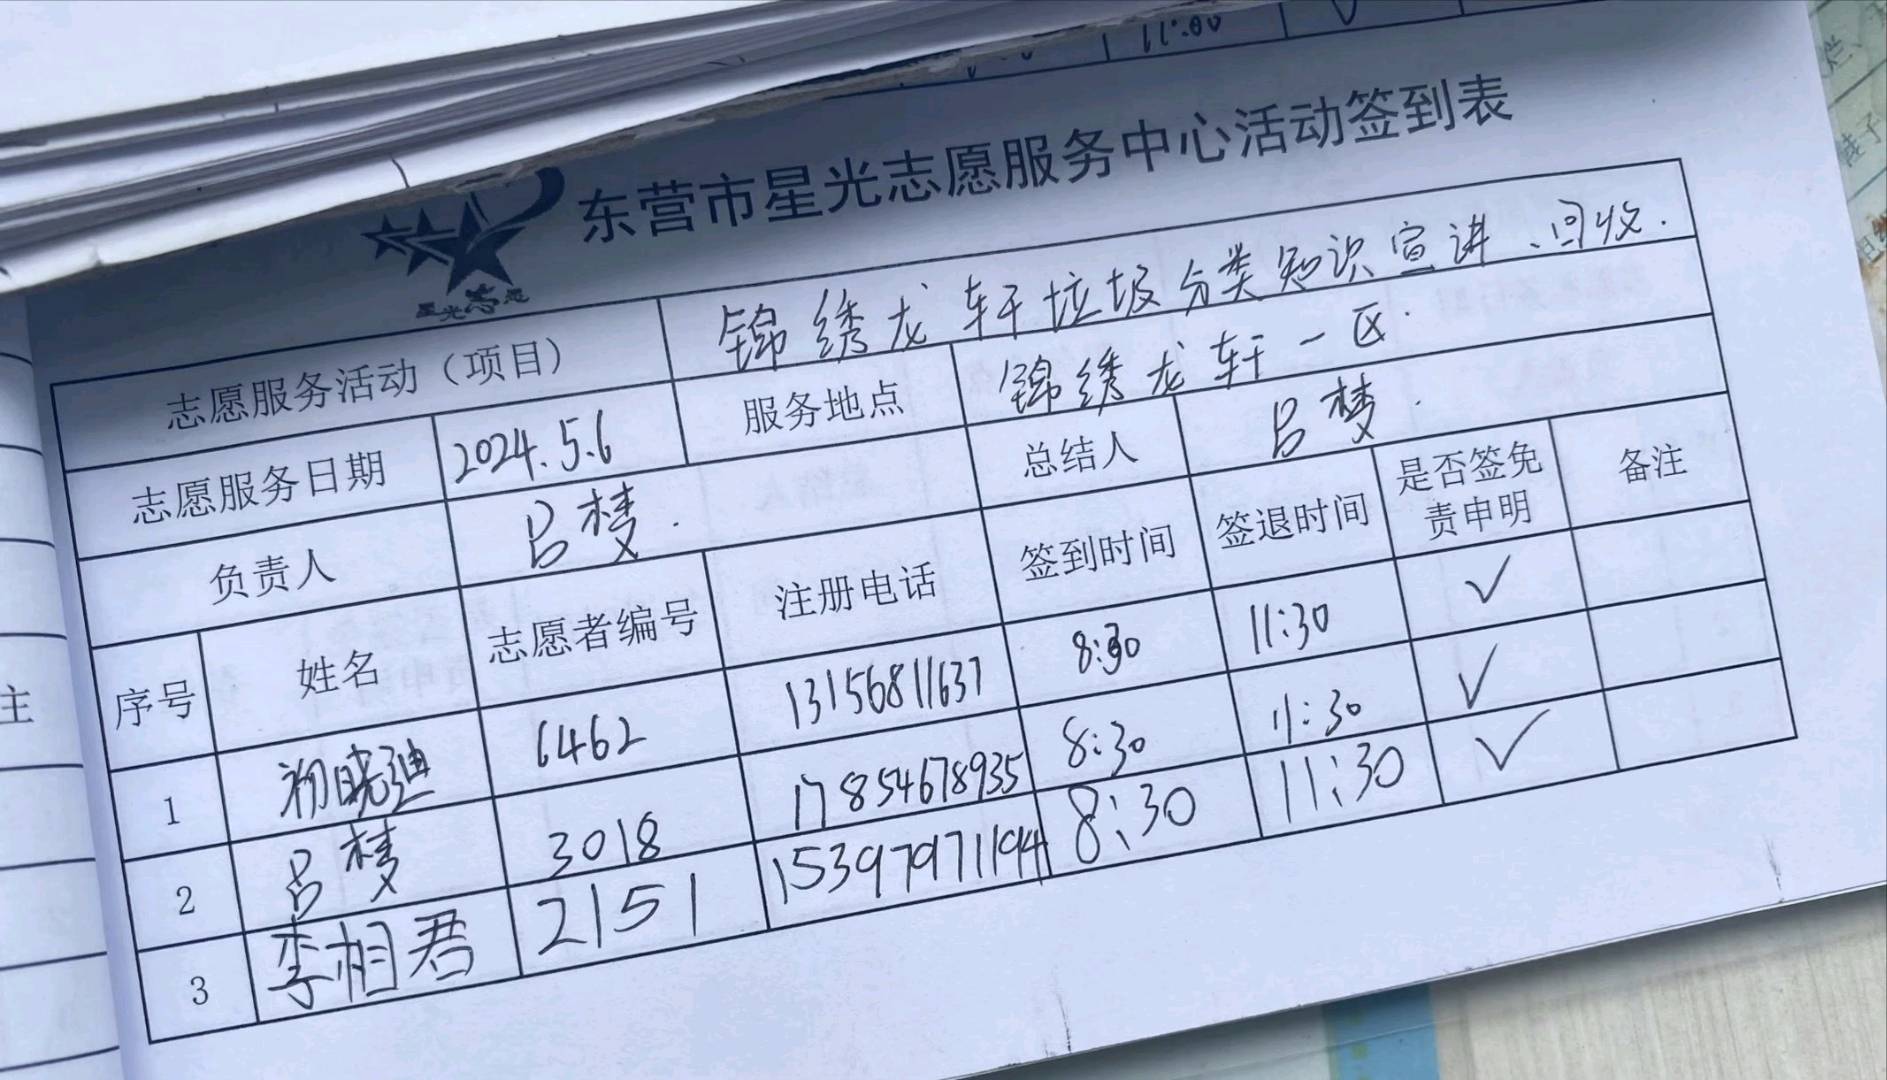 11:00
东营市星光志愿服务中心活动签到表
星光志愿
志愿服务活动（项目） 锦绣龙轩垃圾分类知识宣讲、回收.
志愿服务日期 2024.5.6 服务地点 锦绣龙轩一区.
负责人 吕梦. 总结人 吕梦.
序号 姓名 志愿者编号 注册电话 签到时间 签退时间 是否签免责申明 备注
1 初晓迪 6462 13156811637 8:30 11:30 ✓
2 吕梦 3018 17854678935 8:30 11:30 ✓
3 李相君 2151 15397971194 8:30 11:30 ✓
主